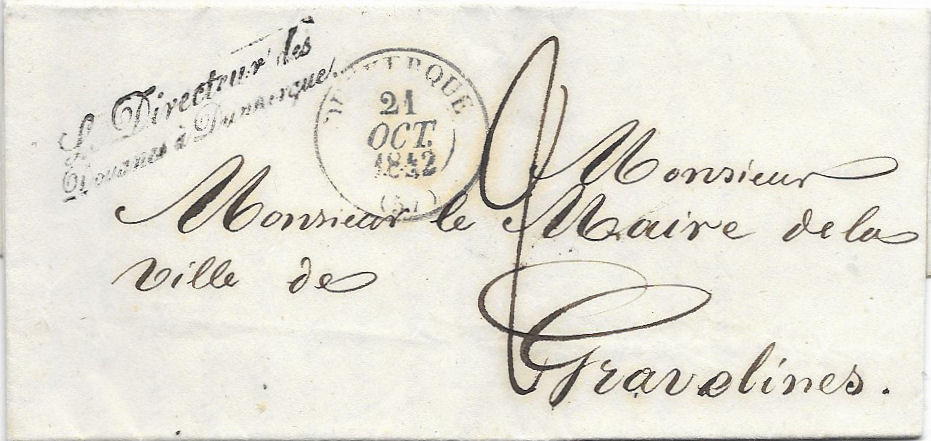 Le Directeur des
Douanes à Dunkerque
DUNKERQUE
21
OCT.
1842
(57)
2
Monsieur
Monsieur le Maire de la
ville de
Gravelines.